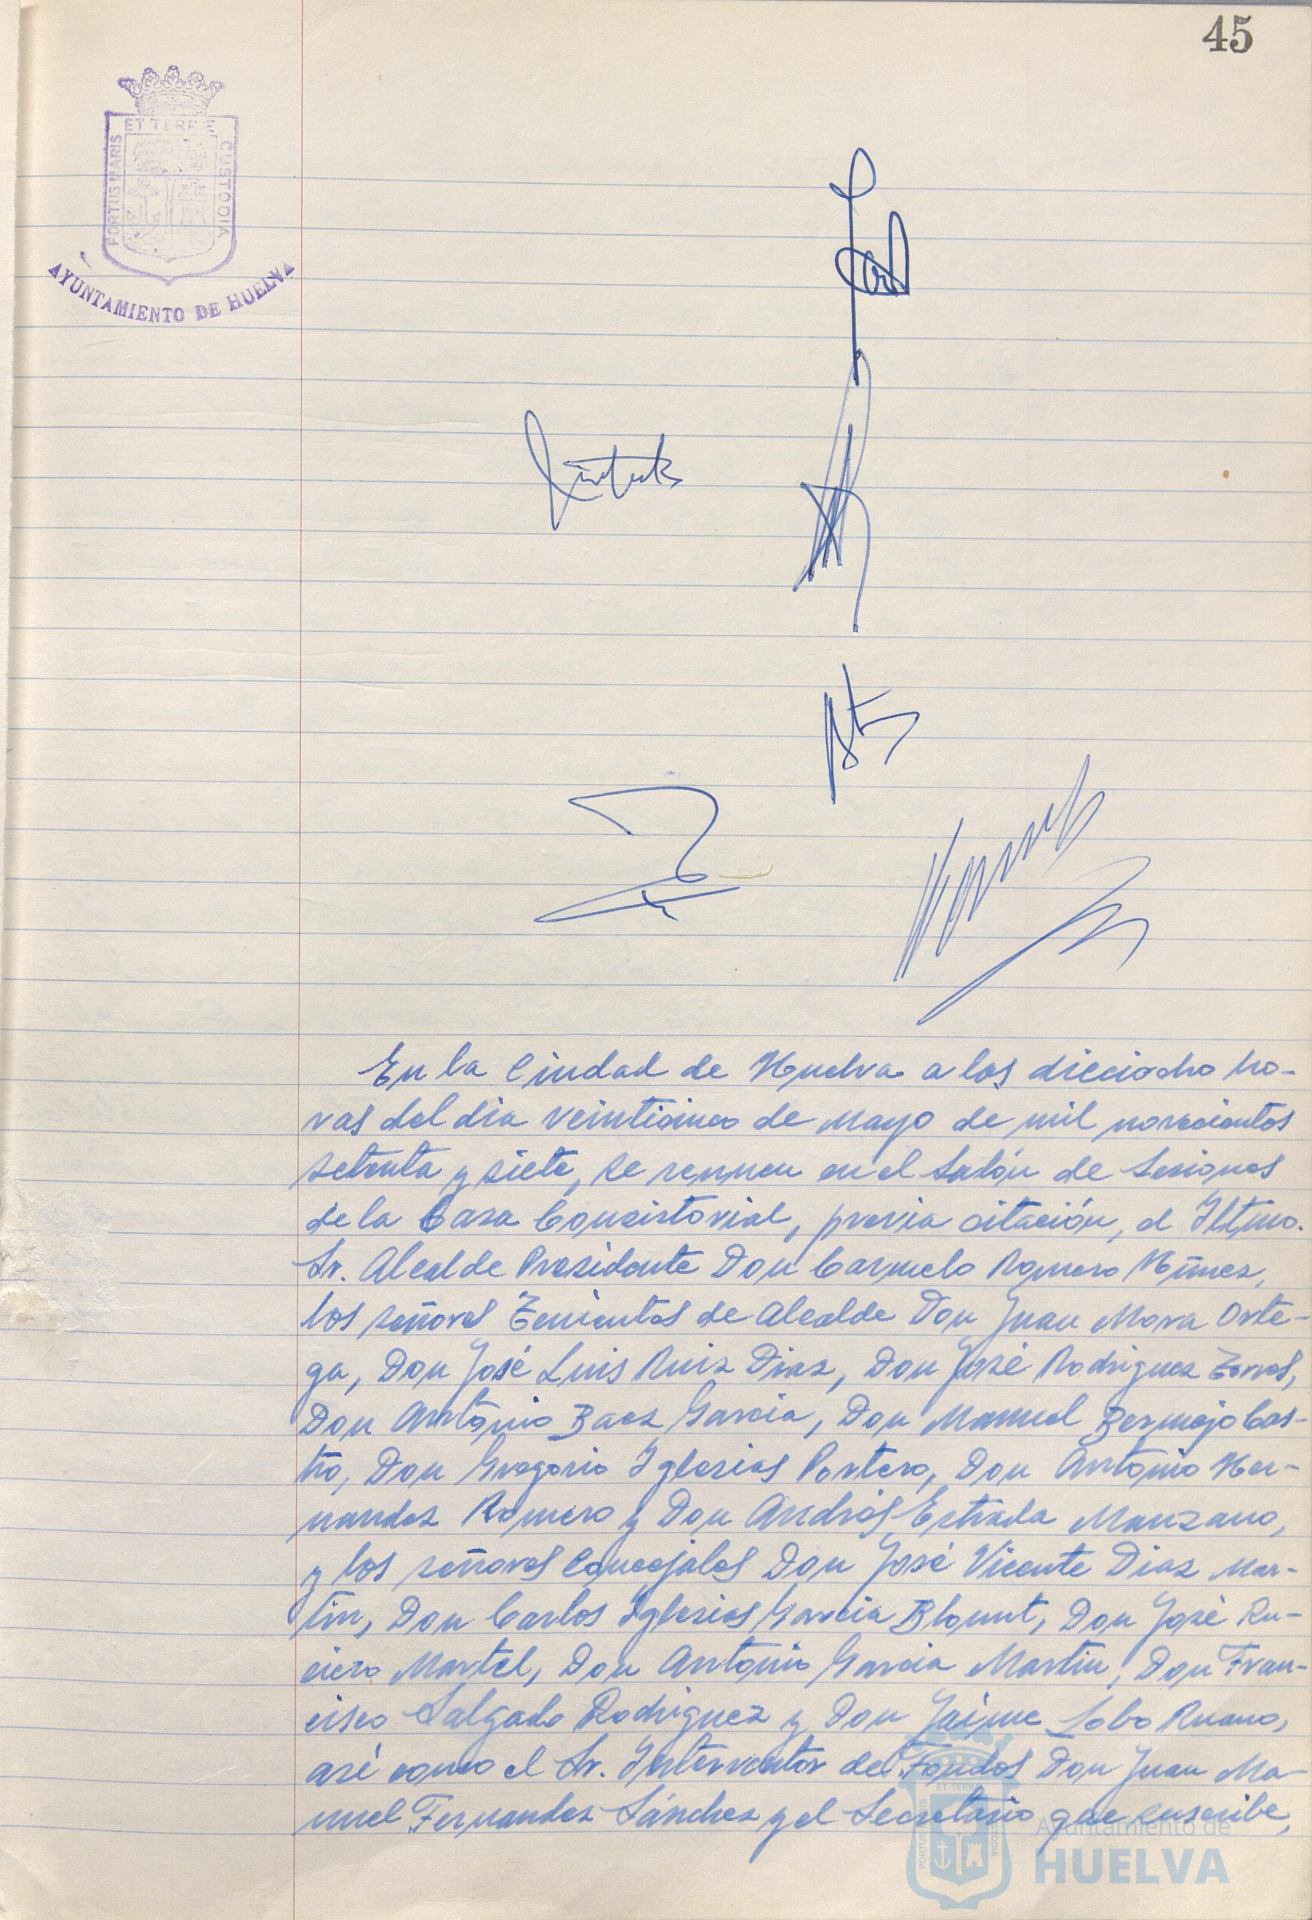 45
ET TERRE
PORTUS MARIS
CUSTODIA
AYUNTAMIENTO DE HUELVA
En la Ciudad de Huelva a las dieciocho ho-
ras del dia veinticinco de Mayo de mil novecientos
setenta y siete, se reunen en el Salón de Sesiones
de la Casa Consistorial, previa citación, el Iltmo.
Sr. Alcalde Presidente Don Carmelo Romero Núñez,
los señores Tenientes de Alcalde Don Juan Mora Orte-
ga, Don José Luis Ruiz Diaz, Don José Rodriguez Torres,
Don Antonio Baez Garcia, Don Manuel Bermejo Cas-
tro, Don Gregorio Iglesias Portero, Don Antonio Her-
nandez Romero y Don Andrés Estrada Manzano,
y los señores Concejales Don José Vicente Diaz Mar-
tin, Don Carlos Iglesias Garcia Blount, Don José Ru-
ciero Martel, Don Antonio Garcia Martin, Don Fran-
cisco Salgado Rodriguez y Don Jaime Lobo Ruano,
asi como el Sr. Interventor de Fondos Don Juan Ma-
nuel Fernandez Sánchez y el Secretario que suscribe,
Ayuntamiento de
HUELVA